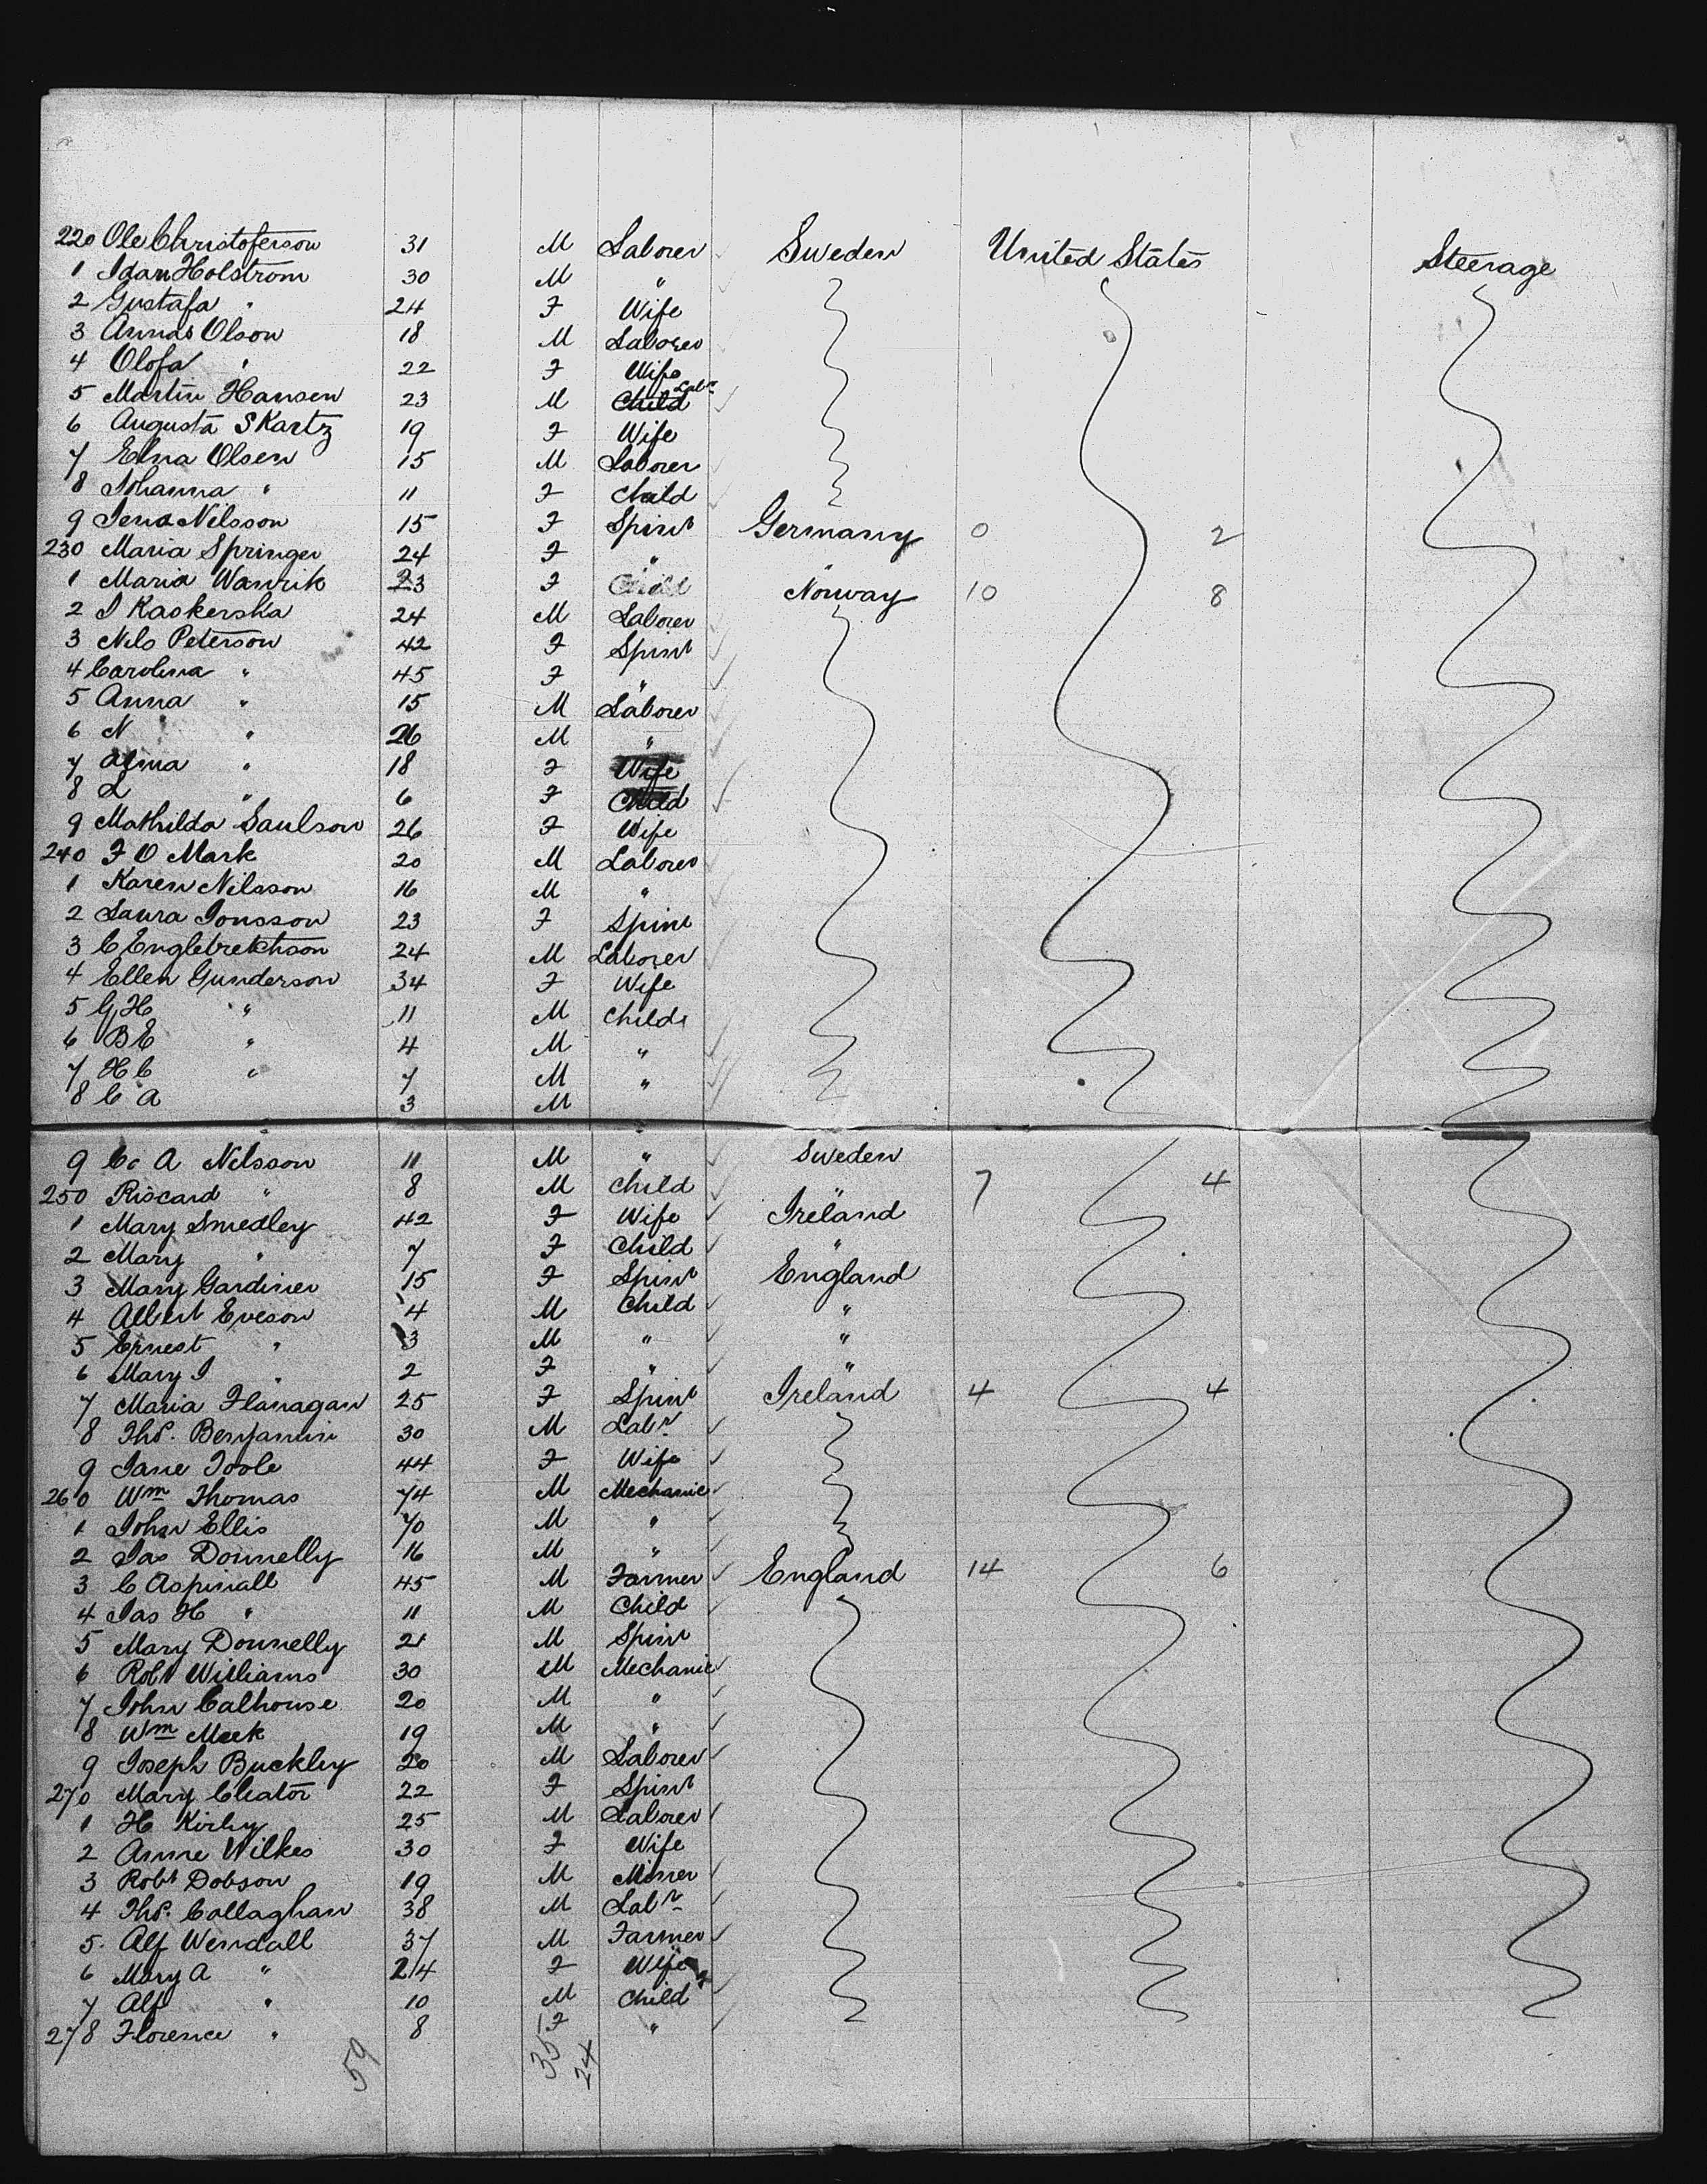 220 Ole Christoferson 31 M Laborer Sweden United States Steerage
1 Idam Holstrom 30 M "
2 Gustafa " 24 F Wife
3 Annas Olson 18 M Laborer
4 Olofa " 22 F Wife
5 Martin Hansen 23 M Child Labr
6 Augusta Skartz 19 F Wife
7 Elna Olsen 15 M Laborer
8 Johanna " 11 F Child
9 Jena Nilsson 15 F Spinr Germany 0 2
230 Maria Springer 24 F " "
1 Maria Wanrik 23 F Child Norway 10 8
2 I Kaskersha 24 M Laborer
3 Nils Peterson 42 F Spinr
4 Carolina " 45 F "
5 Anna " 15 M Laborer
6 N " 26 M "
7 Alma " 18 F Wife
8 L " 6 F Child
9 Mathilda Saulson 26 F Wife
240 F O Mark 20 M Laborer
1 Karen Nilsson 16 M "
2 Laura Jonsson 23 F Spinr
3 C Englebretchson 24 M Laborer
4 Ellen Gunderson 34 F Wife
5 G H " 11 M Childs
6 B E " 4 M "
7 H C " 7 M "
8 C A 3 M
9 C. A Nilsson 11 M " Sweden
250 Riscard " 8 M Child " 7 4
1 Mary Smedley 42 F Wife Ireland
2 Mary " 7 F Child "
3 Mary Gardiner 15 F Spinr England
4 Albert Eveson 4 M Child "
5 Ernest " 3 M " "
6 Mary J " 2 F " "
7 Maria Flanagan 25 F Spinr Ireland 4 4
8 Thos. Benjamin 30 M Labr
9 Jane Toole 44 F Wife
260 Wm Thomas 74 M Mechanic
1 John Ellis 70 M "
2 Jas Donnelly 16 M "
3 C Aspinall 45 M Farmer England 14 6
4 Jas H " 11 M Child
5 Mary Donnelly 21 M Spinr
6 Robt Williams 30 M Mechanic
7 John Calhouse 20 M "
8 Wm Meek 19 M "
9 Joseph Buckley 20 M Laborer
270 Mary Cleator 22 F Spinr
1 H Kirby 25 M Laborer
2 Anne Wilkes 30 F Wife
3 Robt Dobson 19 M Miner
4 Thos. Callaghan 38 M Labr
5. Alf Wendall 37 M Farmer
6 Mary A " 24 F Wife
7 Alf " 10 M Child
278 Florence " 8 F "
59 35 24